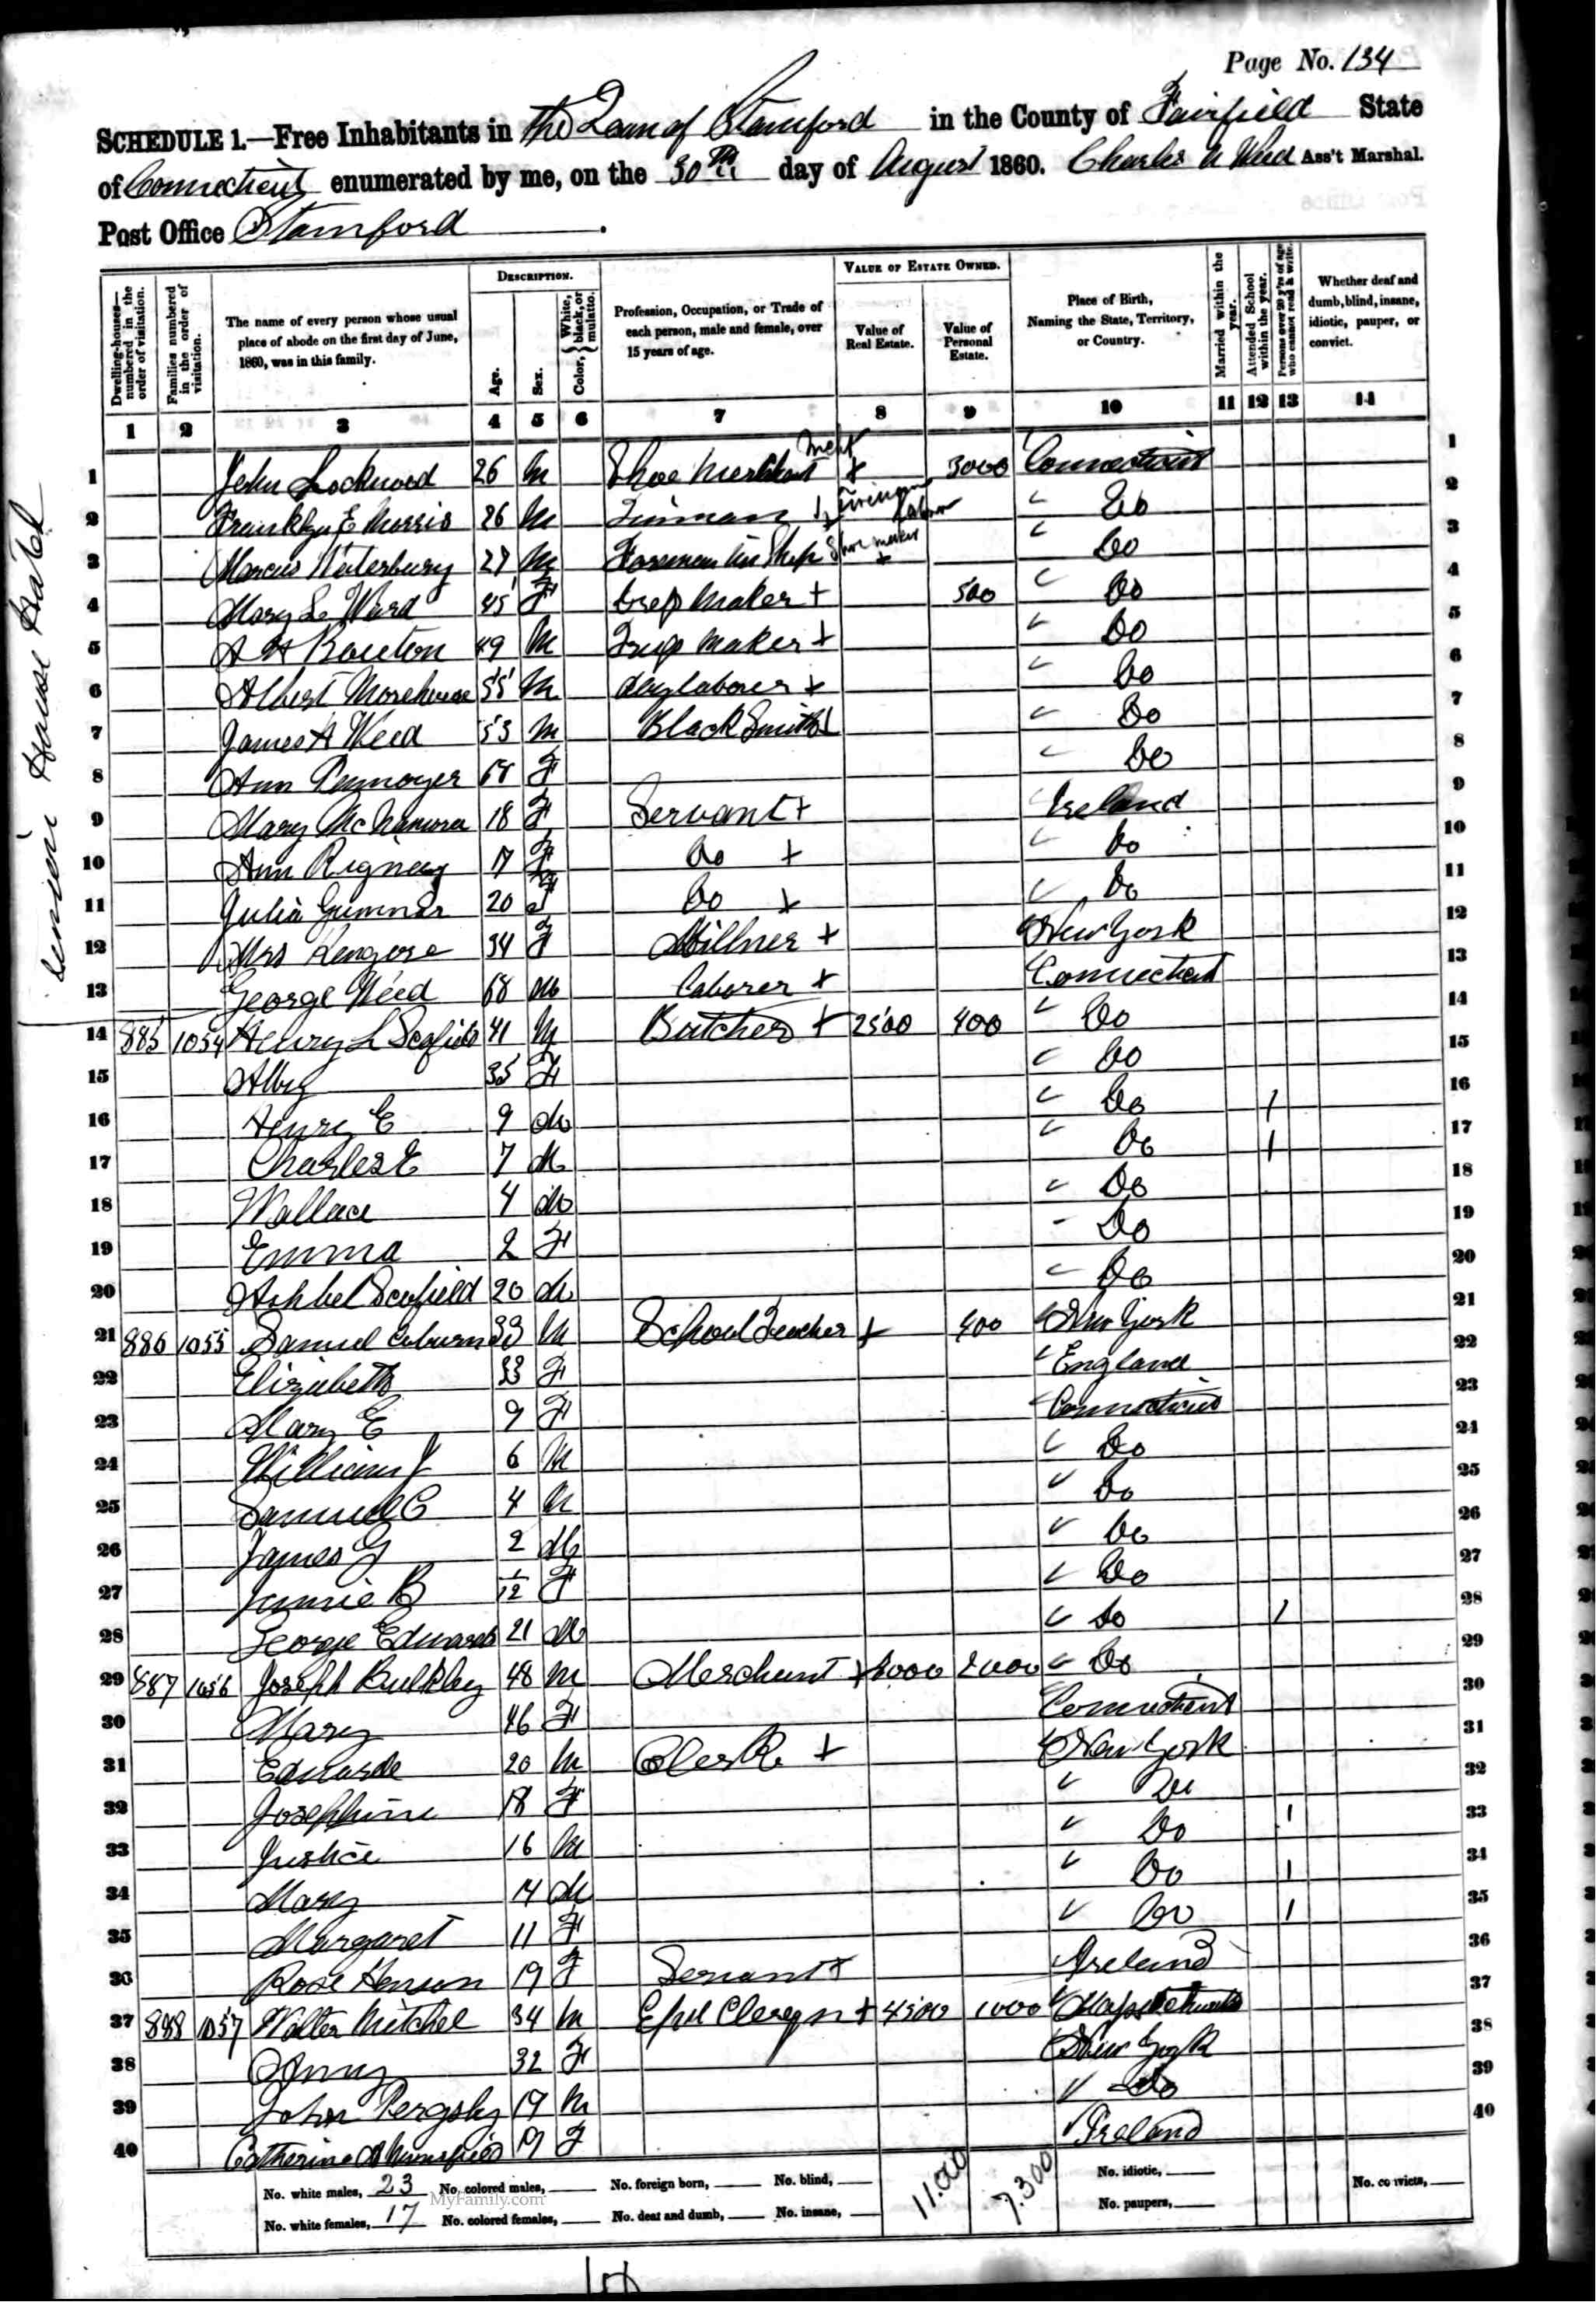 Page No. 134
SCHEDULE 1.—Free Inhabitants in the Town of Stamford in the County of Fairfield State
of Connecticut enumerated by me, on the 30th day of August 1860. Charles Weed Ass't Marshal.
Post Office Stamford
Union House Hotel
Dwelling-houses—numbered in the order of visitation.
Families numbered in the order of visitation.
The name of every person whose usual place of abode on the first day of June, 1860, was in this family.
DESCRIPTION.
Age.
Sex.
Color, White, black, or mulatto.
Profession, Occupation, or Trade of each person, male and female, over 15 years of age.
VALUE OF ESTATE OWNED.
Value of Real Estate.
Value of Personal Estate.
Place of Birth, Naming the State, Territory, or Country.
Married within the year.
Attended School within the year.
Persons over 20 y'rs of age who cannot read & write.
Whether deaf and dumb, blind, insane, idiotic, pauper, or convict.
1 2 3 4 5 6 7 8 9 10 11 12 13 14
1 John Lockwood 26 M Shoe Merchant + 3000 Connecticut 1
2 E Morris 26 M Tinman + Do 2
3 Marcus Waterbury 27 M Foreman Shop Shoe maker + Do 3
4 Mary Ward 45 F maker + 500 Do 4
5 A H Bouton 49 M maker + Do 5
6 Albert Morehouse 55 M day laborer + Do 6
7 James A Weed 53 M Black Smith + Do 7
8 Ann Pennoyer 68 F Do 8
9 Mary McNamora 18 F Servant + Ireland 9
10 Ann Rigney 17 F Do + Do 10
11 Julia 20 F Do + Do 11
12 Mrs 34 F Millner + New York 12
13 George Weed 68 M Laborer + Connecticut 13
14 885 1054 Henry L Scofield 41 M Butcher + 2500 400 Do 14
15 35 F Do 15
16 Henry E 9 M Do 1 16
17 Charles E 7 M Do 1 17
18 Wallace 4 M Do 18
19 Emma 2 F Do 19
20 Ashbel Scofield 20 M Do 20
21 886 1055 Samuel Coburn 33 M School Teacher + 400 New York 21
22 Elizabeth 33 F England 22
23 Mary E 9 F Connecticut 23
24 William J 6 M Do 24
25 Samuel C 4 M Do 25
26 James G 2 M Do 26
27 Jennie B 1/12 F Do 27
28 George Edwards 21 M Do 1 28
29 887 1056 Joseph Bulkley 48 M Merchant + 4000 2000 Do 29
30 Mary 46 F Connecticut 30
31 Edward 20 M Clerk + New York 31
32 Josephine 18 F Do 32
33 Justice 16 M Do 1 33
34 Mary 14 M Do 1 34
35 Margaret 11 F Do 1 35
36 Rose 19 F Servant + Ireland 36
37 888 1057 Walter Mitchel 34 M Clergn + 4500 1000 Massachusetts 37
38 32 F New York 38
39 John 19 M do 39
40 Catherine 19 F Ireland 40
No. white males, 23 No. colored males, No. foreign born, No. blind, 11.000 7.300 No. idiotic, No. convicts,
No. white females, 17 No. colored females, No. deaf and dumb, No. insane, No. paupers,
MyFamily.com